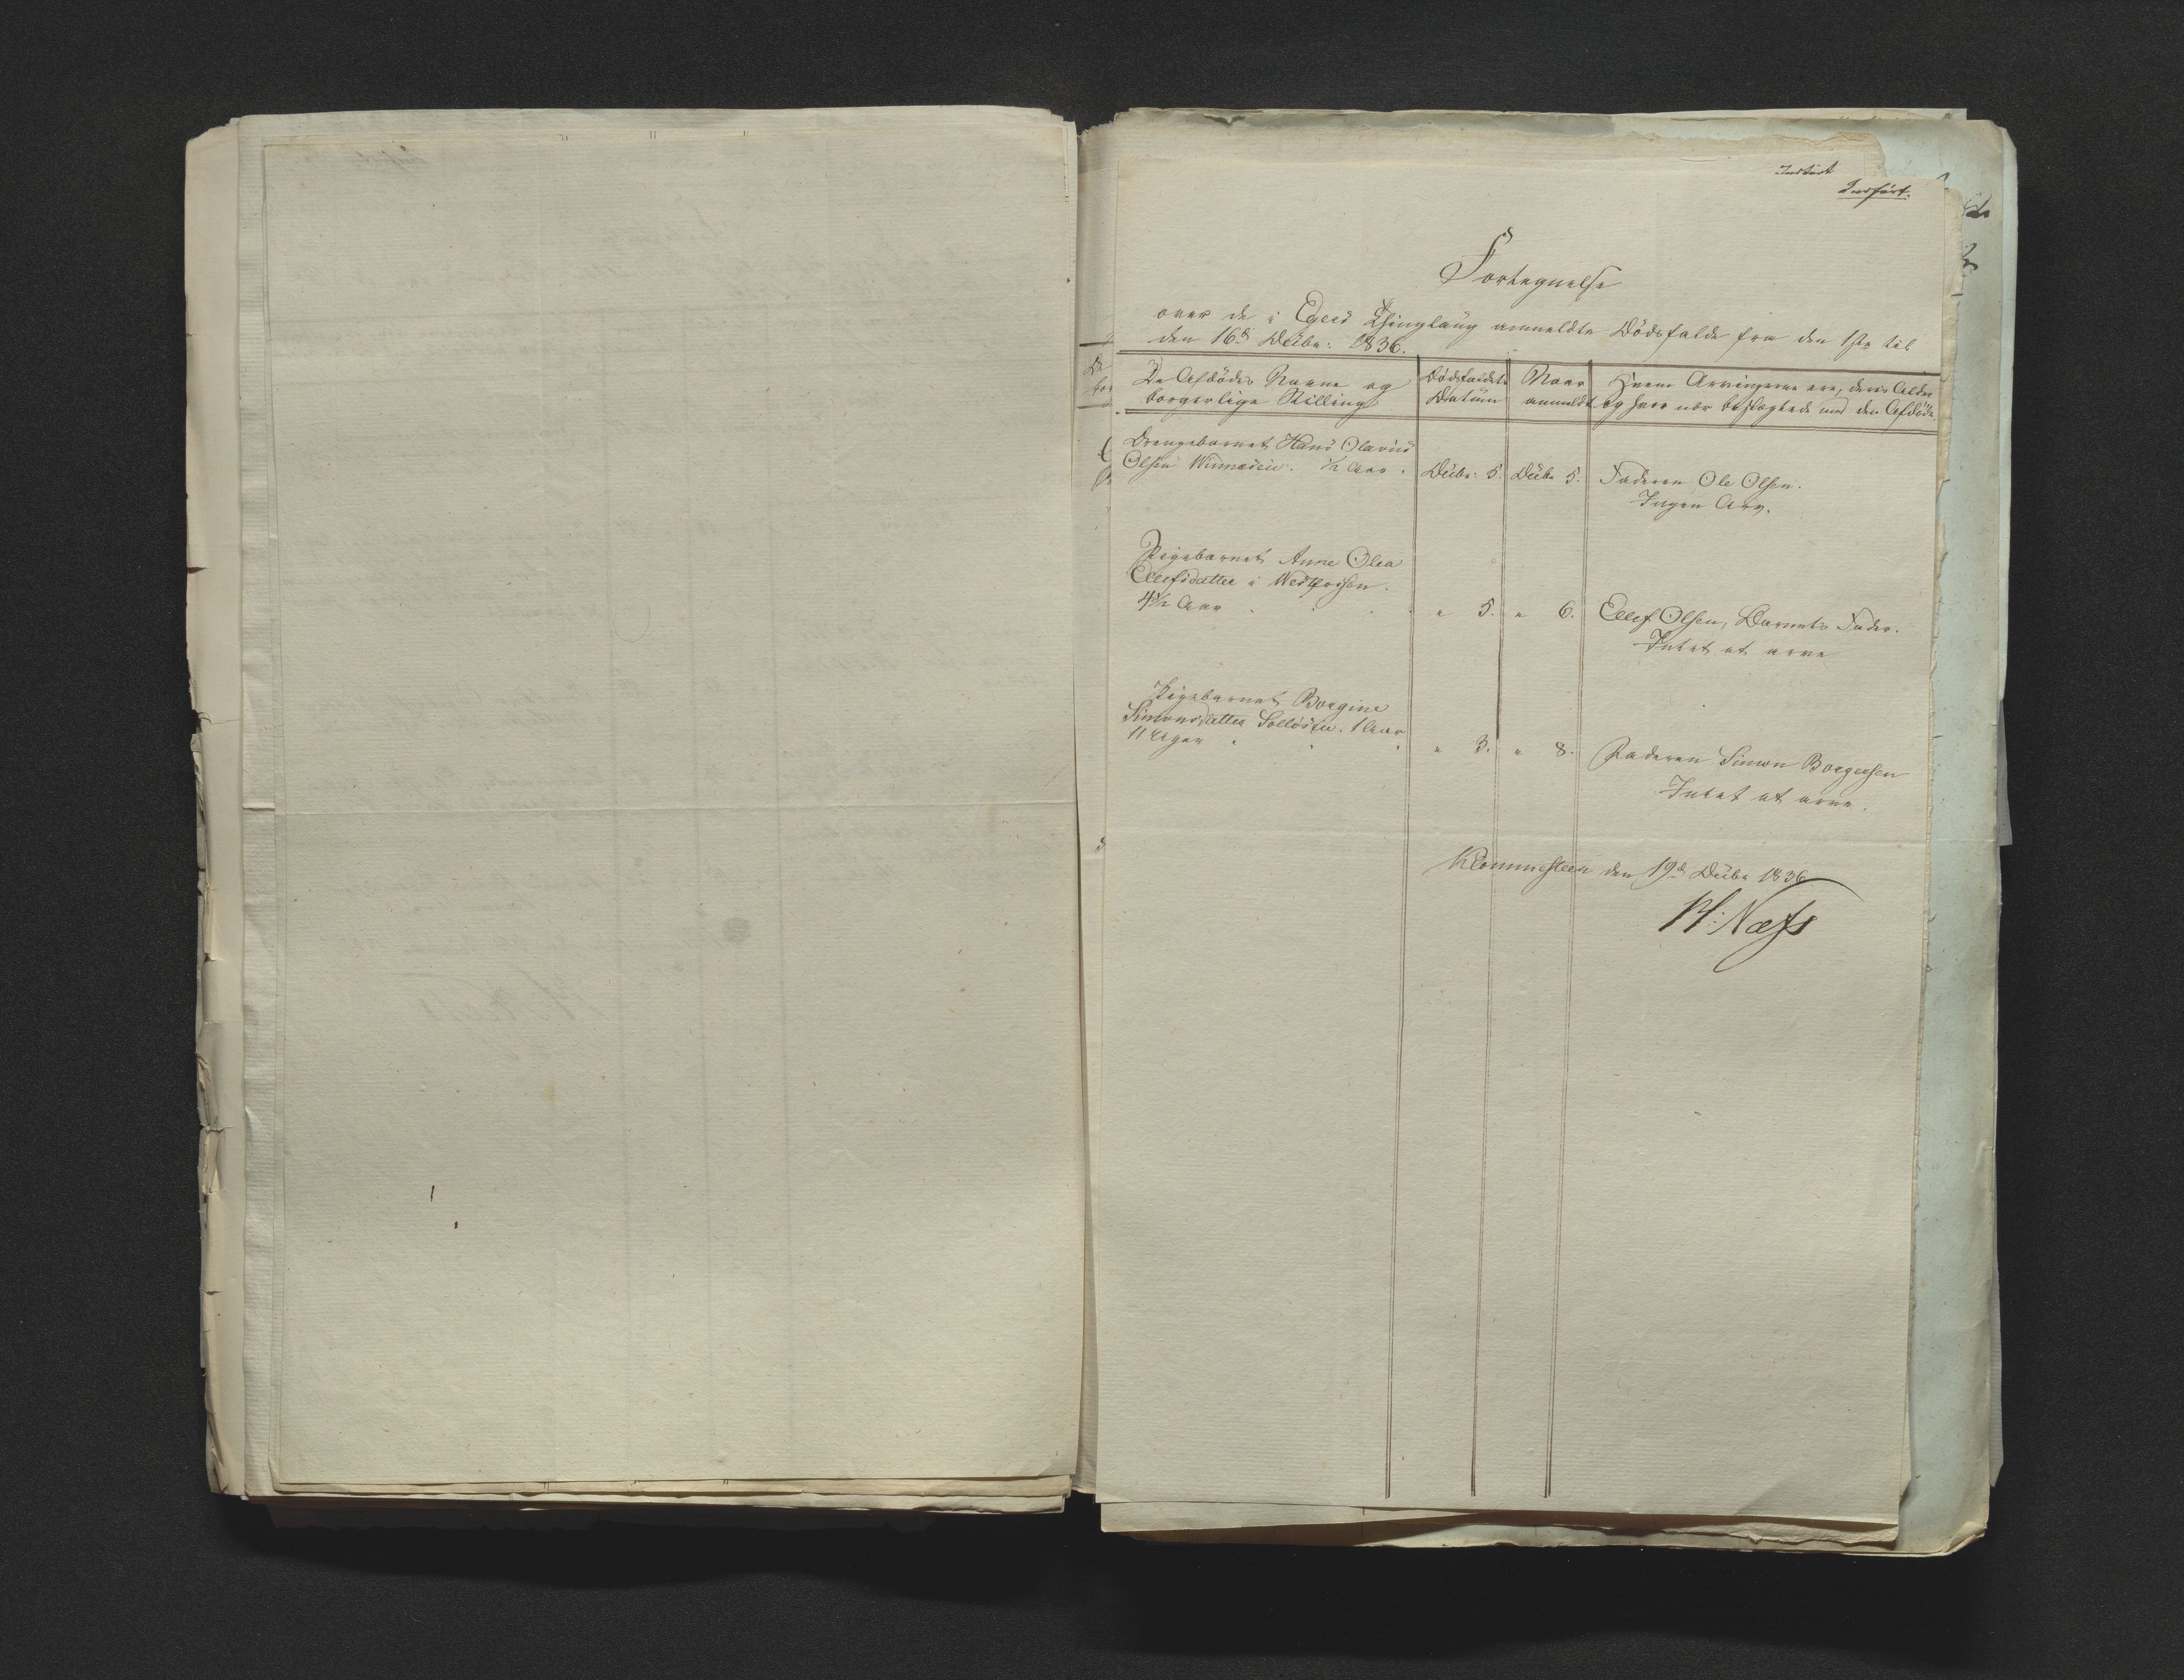 Indført.
Fortegnelse
over de i Egers Thinglaug anmeldte Dödsfalde fra den 1ste til
den 16de Decbr: 1836.
De Afdödes Navne og
borgerlige Stilling
Dödsfaldets
Datum
Naar
anmeldt
Hvem Arvingerne ere, deres Alder
og hvor nær beslægtede med den Afdöde
Drengebarnet Hans Olavus
Olsen ½ Aar. Decbr: 5. Decbr 5. Faderen Ole Olsen.
Ingen Arv.
Pigebarnet Anne Olea
Ellefsdatter i
4½ Aar " 5. " 6. Ellef Olsen, Barnets Fader.
Intet at arve
Pigebarnet Borgine
Simonsdatter 1 Aar
11 Uger " 3. " 8. Faderen Simon Borgersen
Intet at arve.
den 19de Decbr 1836
Næss